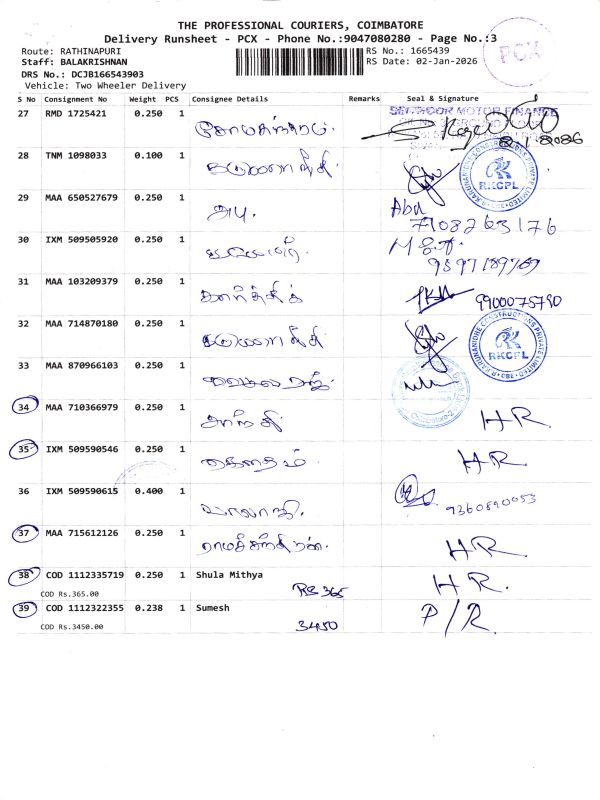 THE PROFESSIONAL COURIERS, COIMBATORE
Delivery Runsheet - PCX - Phone No.:9047080280 - Page No.:3
Route: RATHINAPURI
RS No.: 1665439
Staff: BALAKRISHNAN
RS Date: 02-Jan-2026
DRS No.: DCJB166543903
Vehicle: Two Wheeler Delivery
PCX
S No Consignment No Weight PCS Consignee Details Remarks Seal & Signature
27 RMD 1725421 0.250 1
28 TNM 1098033 0.100 1 கருணாநிதி
RKCPL
29 MAA 650527679 0.250 1 அபு. Abu
7108263176
30 IXM 509505920 0.250 1
9597189769
31 MAA 103209379 0.250 1 கார்த்திக் 9900075790
32 MAA 714870180 0.250 1 கருணாநிதி
RKCPL
33 MAA 870966103 0.250 1
34 MAA 710366979 0.250 1 HR
35 IXM 509590546 0.250 1 கௌதம் HR
36 IXM 509590615 0.400 1 பாலாஜி. 9360590053
37 MAA 715612126 0.250 1 ராமச்சந்திரன். HR
38 COD 1112335719 0.250 1 Shula Mithya HR.
COD Rs.365.00 RS 365
39 COD 1112322355 0.238 1 Sumesh P/R.
COD Rs.3450.00 3450